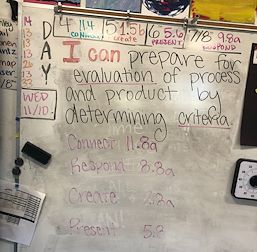 DAY
WED
11/10
4 11.4 connect
5 1.5b create
6 5.6 PRESENT
7/8 9.8a RESPOND
I can prepare for
evaluation of process
and product by
determining criteria.
Connect 11.8a
Respond 8.8a
Create
Present 5.8